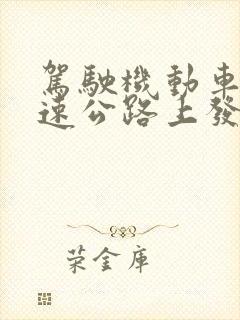 駕駛機動車
速公路上發
荣金庫